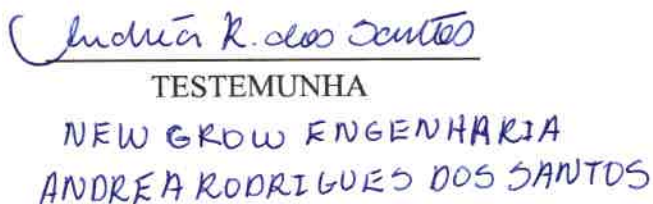 Andréa R. dos Santos
TESTEMUNHA
NEW GROW ENGENHARIA
ANDREA RODRIGUES DOS SANTOS